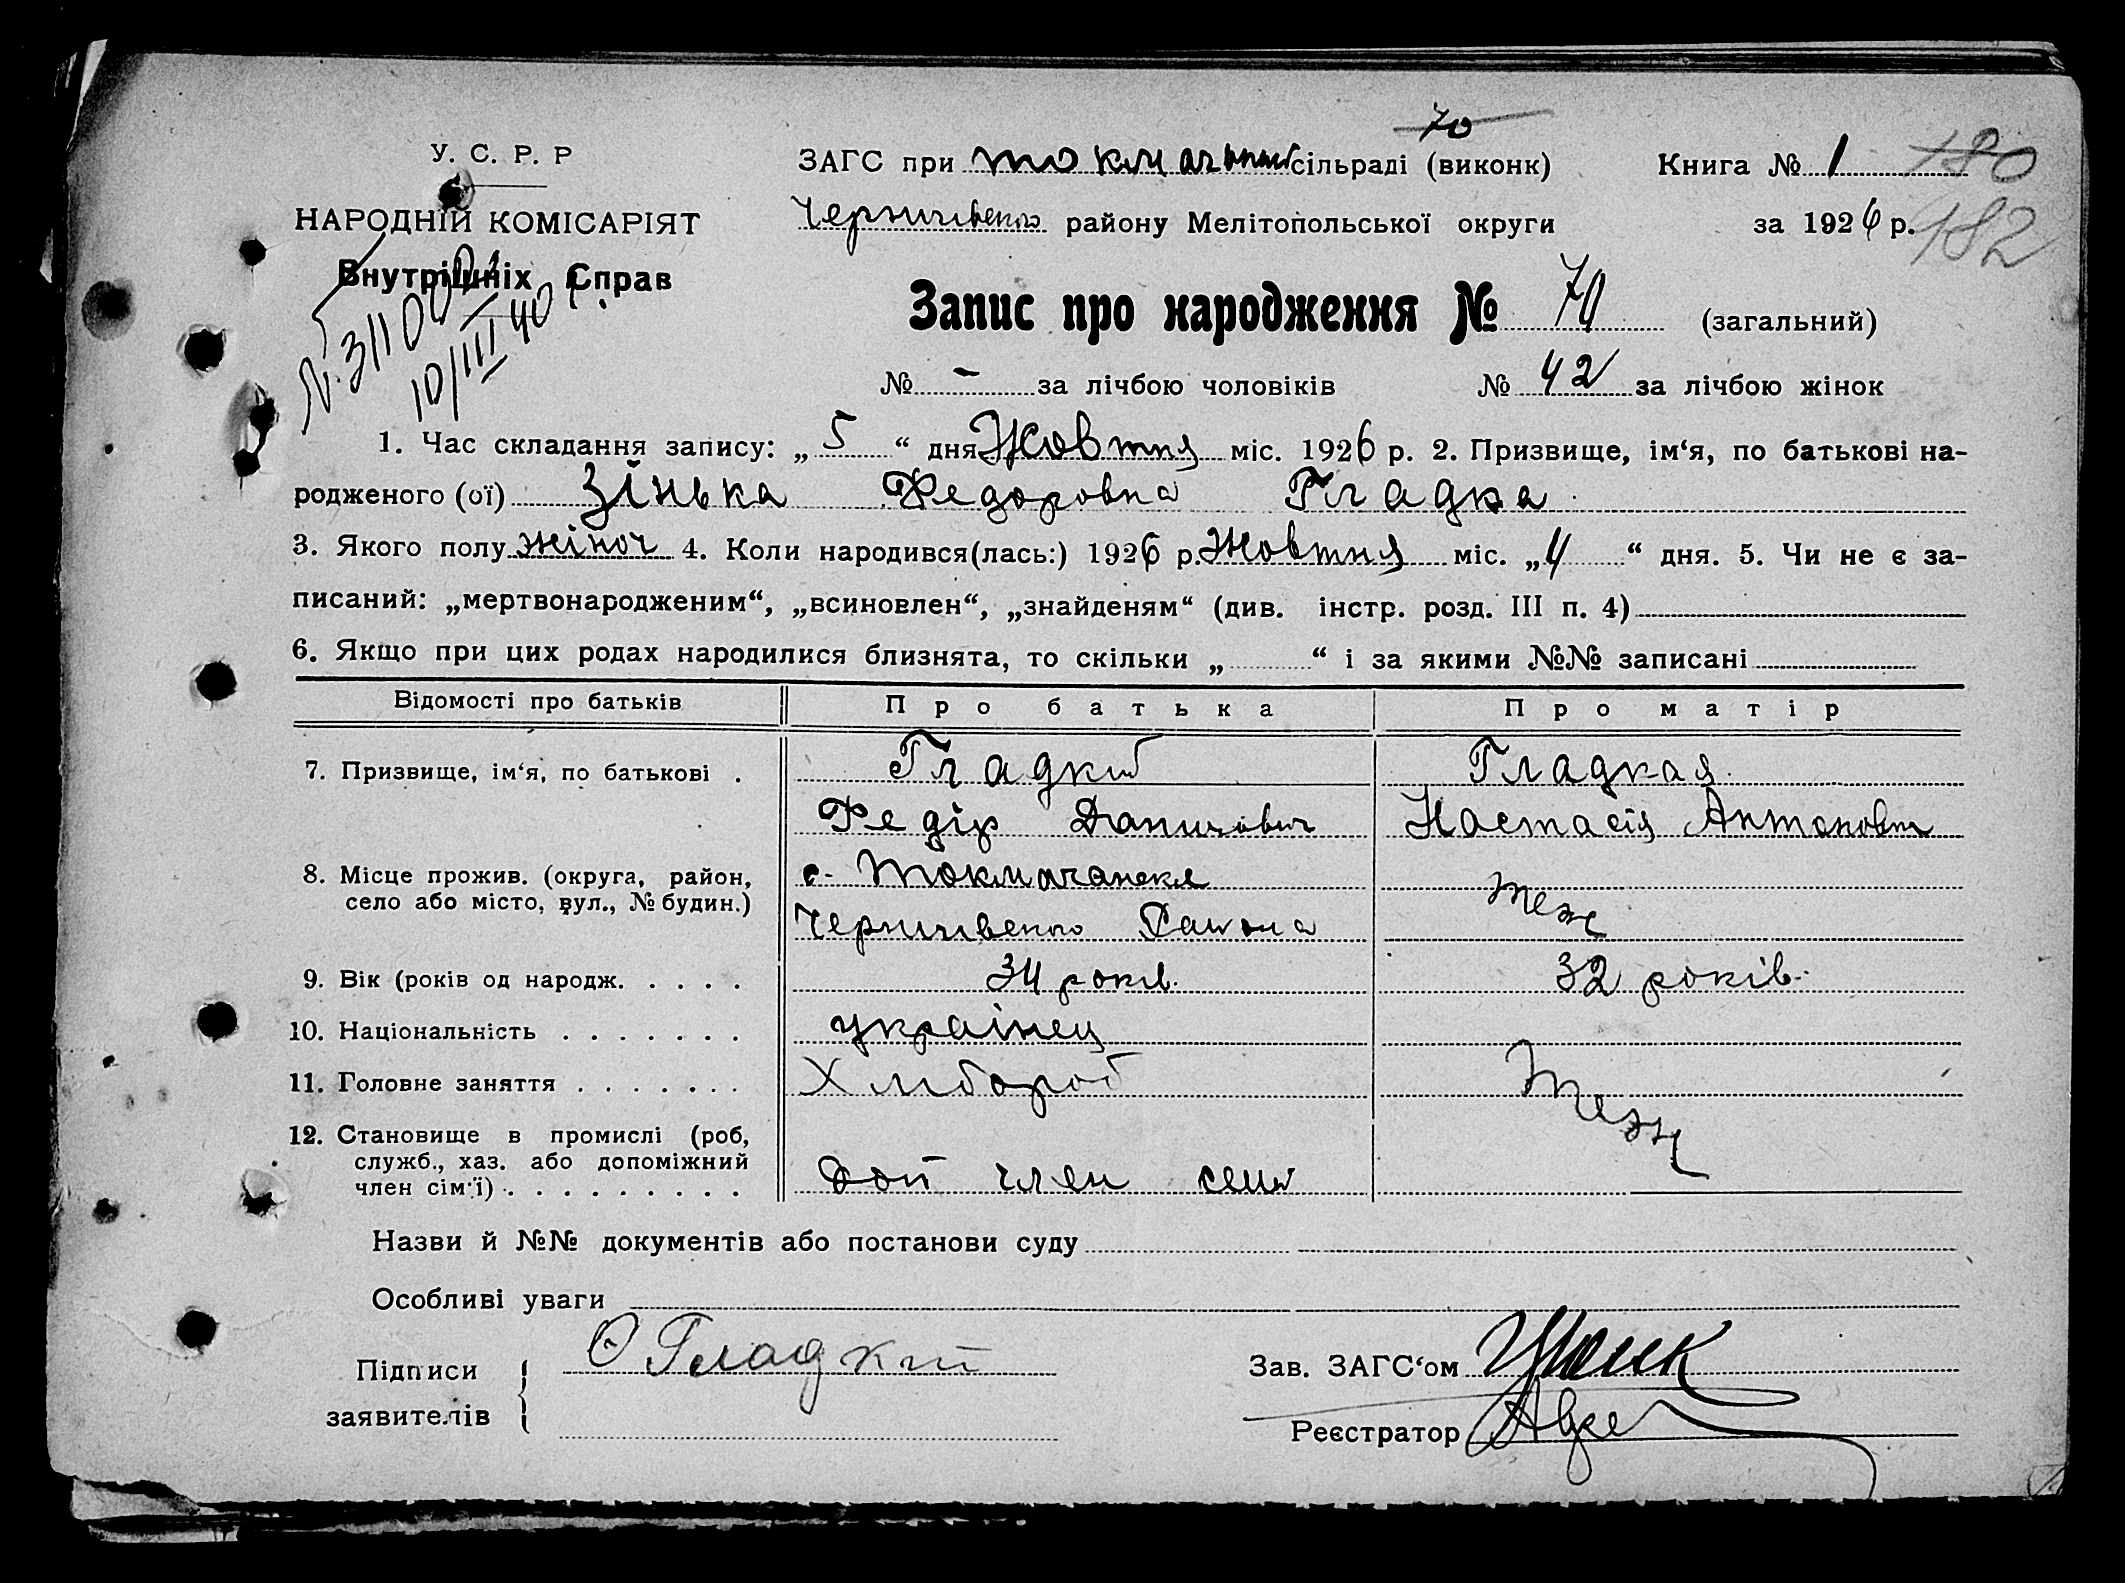 70
У. С. Р. Р
ЗАГС при сільраді (виконк)
Книга № 1 180
НАРОДНІЙ КОМІСАРІЯТ
району Мелітопольської округи
за 1926 р. 182
Внутрішніх Справ
10/III 40
Запис про народження № 70 (загальний)
№ - за лічбою чоловіків № 42 за лічбою жінок
1. Час складання запису: „ 5 “ дня Жовтня міс. 1926 р. 2. Призвище, ім‘я, по батькові на-
родженого (ої) Зінька Федоровна Гладка
3. Якого полу жіноч 4. Коли народився(лась:) 1926 р. Жовтня міс. „ 4 “ дня. 5. Чи не є за-
писаний: „мертвонародженим“, „всиновлен“, „знайденям“ (див. інстр. розд. III п. 4)
6. Якщо при цих родах народилися близнята, то скільки „ “ і за якими №№ записані
Відомості про батьків Про батька Про матір
7. Призвище, ім‘я, по батькові . Гладкий Гладкая
Федір Данилович Настасія Антоновна
8. Місце прожив. (округа, район, с. Токмачанске
село або місто, вул., № будин.) теж
Района
9. Вік (років од народж. . . . . 34 років. 32 років.
10. Національність . . . . . . . українец
11. Головне заняття . . . . . . . Хлібороб теж
12. Становище в промислі (роб,
служб., хаз. або допоміжний
член сім‘ї) . . . . . . . . . доп член семї
Назви й №№ документів або постанови суду
Особливі уваги
Підписи Гладкий
Зав. ЗАГС‘ом
заявителів
Реєстратор